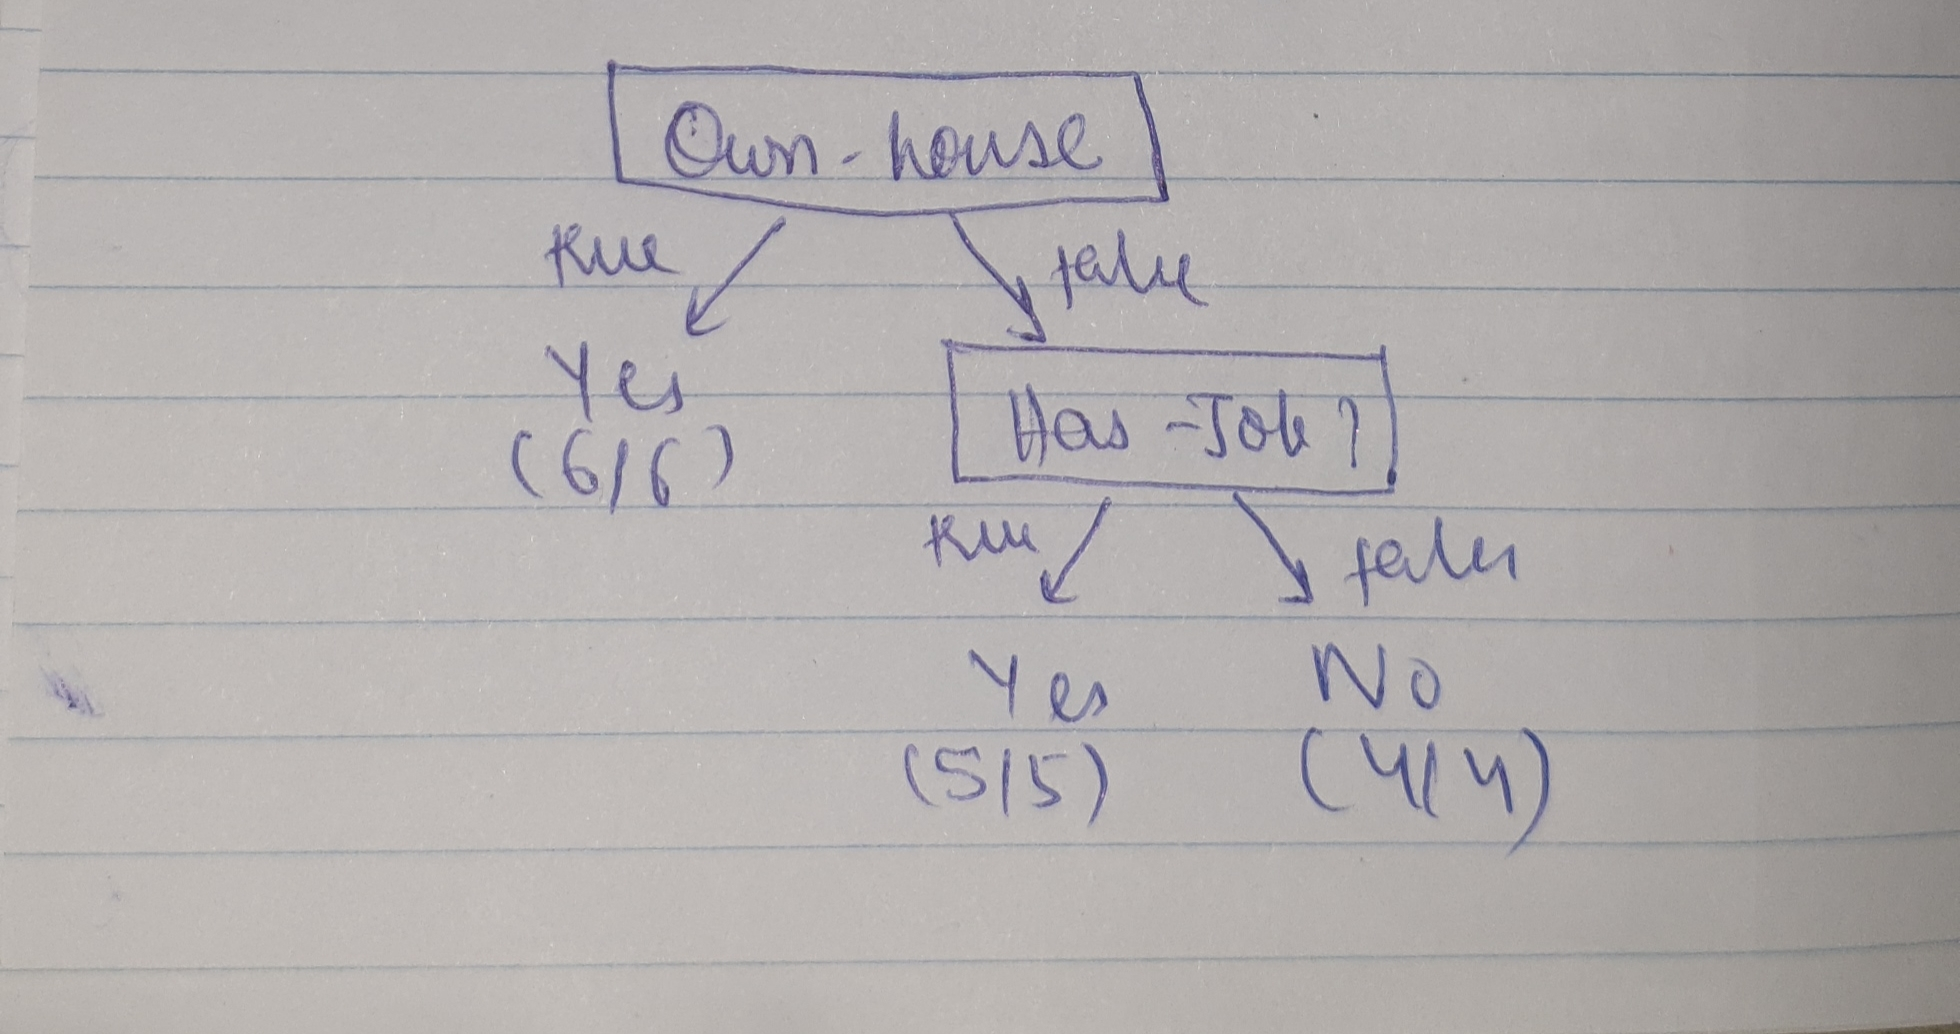 Own-house
true
false
Yes
(6/6)
Has-Job?
true
false
Yes
No
(5/5)
(4/4)